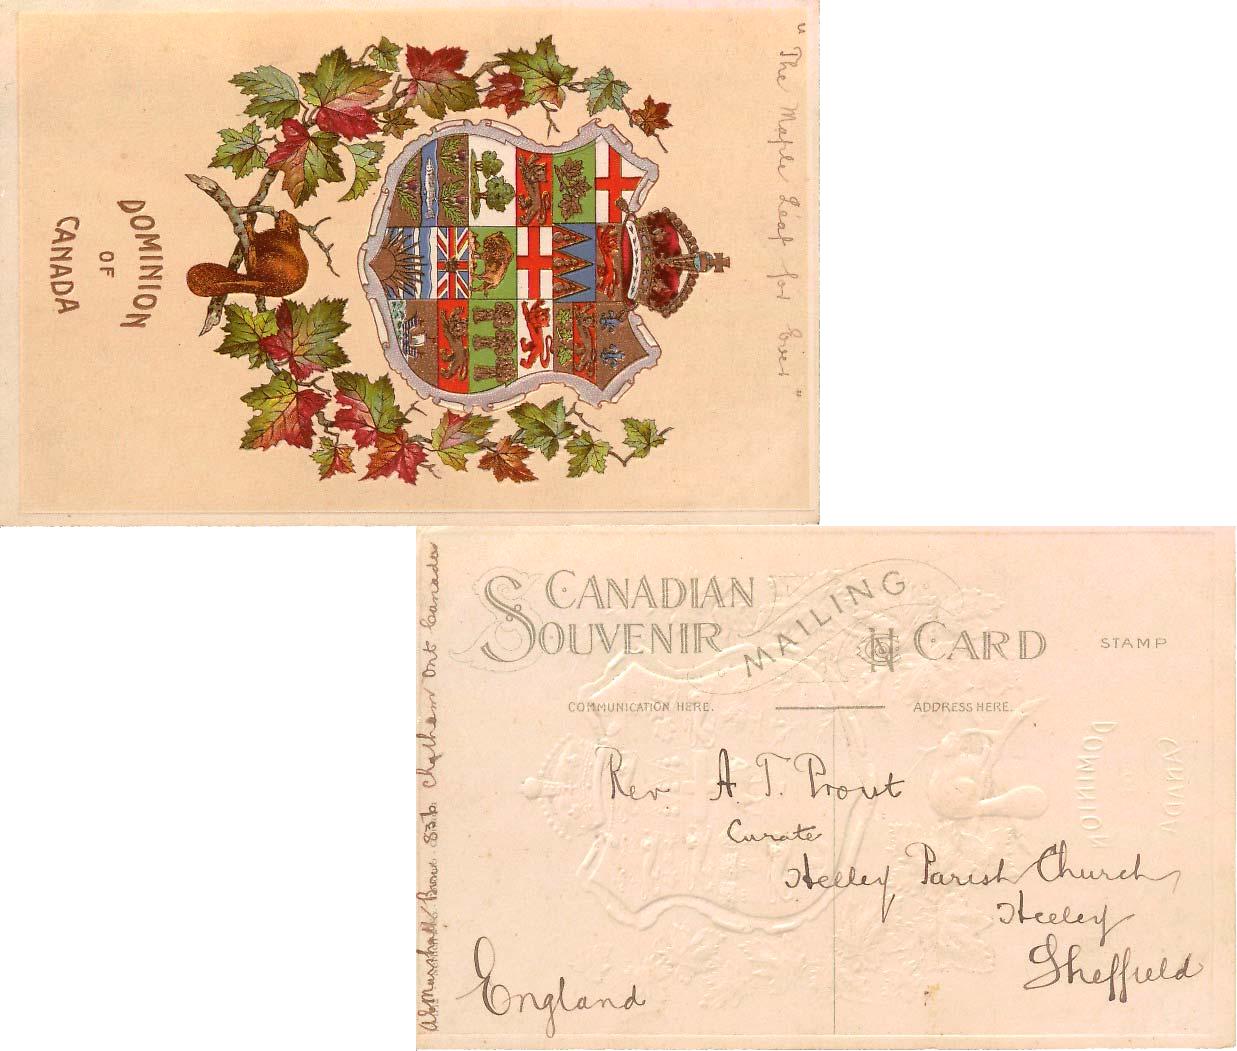 "The Maple Leaf for Ever"
DOMINION
OF
CANADA
CANADIAN
SOUVENIR
MAILING
CARD
STAMP
COMMUNICATION HERE.
ADDRESS HERE.
Rev A. T. Prout
Curate
Heeley Parish Church,
Heeley
Sheffield
England
Marshall Chatham Ont Canada
DOMINION
CANADA